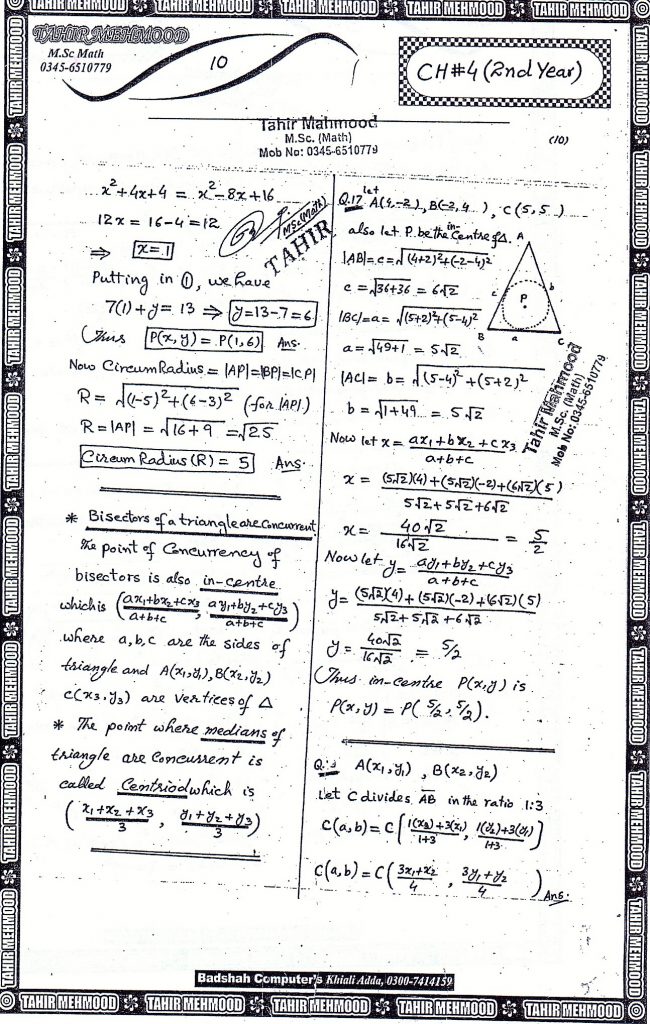 TAHIR MEHMOOD TAHIR MEHMOOD TAHIR MEHMOOD TAHIR MEHMOOD TAHIR MEHMOOD
TAHIR MEHMOOD
M.Sc Math
0345-6510779
10
CH#4 (2nd Year)
Tahir Mahmood
M.Sc. (Math)
Mob No: 0345-6510779
(10)
x²+4x+4 = x²-8x+16
12x = 16-4 = 12
⇒ x=1
Putting in ①, we have
7(1)+y = 13 ⇒ y=13-7=6
Thus P(x,y) = P(1,6) Ans.
Now CircumRadius = |AP|=|BP|=|CP|
R = √(1-5)²+(6-3)² (for |AP|)
R = |AP| = √16+9 = √25
Circum Radius (R) = 5 Ans.
MSc(Math)
TAHIR
* Bisectors of a triangle are Concurrent
The point of Concurrency of
bisectors is also in-centre
which is (ax₁+bx₂+cx₃/a+b+c, ay₁+by₂+cy₃/a+b+c)
where a,b,c are the sides of
triangle and A(x₁,y₁), B(x₂,y₂)
C(x₃,y₃) are vertices of Δ
* The point where medians of
triangle are Concurrent is
called Centriod which is
(x₁+x₂+x₃/3, y₁+y₂+y₃/3)
Q.17 let A(4,-2), B(-2,4), C(5,5)
also let P. be the in-Centre of Δ.
|AB|=c=√(4+2)²+(-2-4)²
c = √36+36 = 6√2
|BC|=a= √(5+2)²+(5-4)²
a = √49+1 = 5√2
|AC|= b = √(5-4)²+(5+2)²
b = √1+49 = 5√2
A
c
b
P
B
a
C
Tahir Mahmood
M.Sc. (Math)
Mob No: 0345-6510779
Now let x = ax₁+bx₂+cx₃/a+b+c
x = (5√2)(4)+(5√2)(-2)+(6√2)(5)/5√2+5√2+6√2
x = 40√2/16√2 = 5/2
Now let y = ay₁+by₂+cy₃/a+b+c
y = (5√2)(4)+(5√2)(-2)+(6√2)(5)/5√2+5√2+6√2
y = 40√2/16√2 = 5/2
Thus in-centre P(x,y) is
P(x,y) = P(5/2, 5/2).
A(x₁,y₁), B(x₂,y₂)
Let C divides AB in the ratio 1:3
C(a,b) = C[1(x₂)+3(x₁)/1+3, 1(y₂)+3(y₁)/1+3]
C(a,b) = C(3x₁+x₂/4, 3y₁+y₂/4) Ans.
Badshah Computer's Khiali Adda, 0300-7414159
TAHIR MEHMOOD TAHIR MEHMOOD TAHIR MEHMOOD TAHIR MEHMOOD TAHIR MEHMOOD